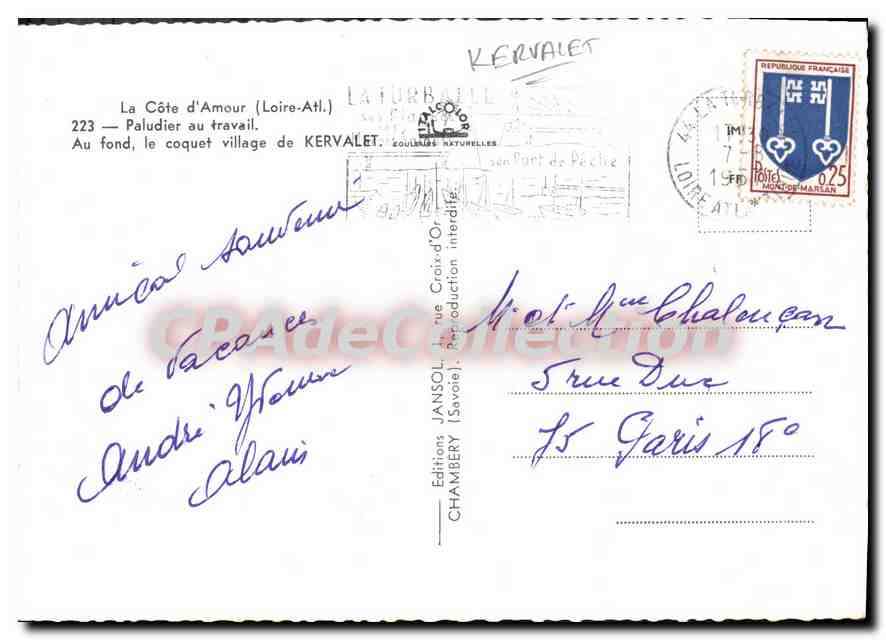 KERVALET
La Côte d'Amour (Loire-Atl.)
223 — Paludier au travail.
Au fond, le coquet village de KERVALET.
ITALCOLOR
COULEURS NATURELLES
LA TURBALLE
son Port de Pêche
44 LA TURB
7-8
19
LOIRE
ATL. *
REPUBLIQUE FRANÇAISE
POSTES
0,25
MONT-DE-MARSAN
Amical souvenir
de vacances
André Yvonne
Alain
Editions JANSOL, 1, rue Croix-d'Or
CHAMBERY (Savoie). Reproduction interdite.
Mr et Mme Chalençon
5 rue Duc
75 Paris 18°
CPAdeCollection